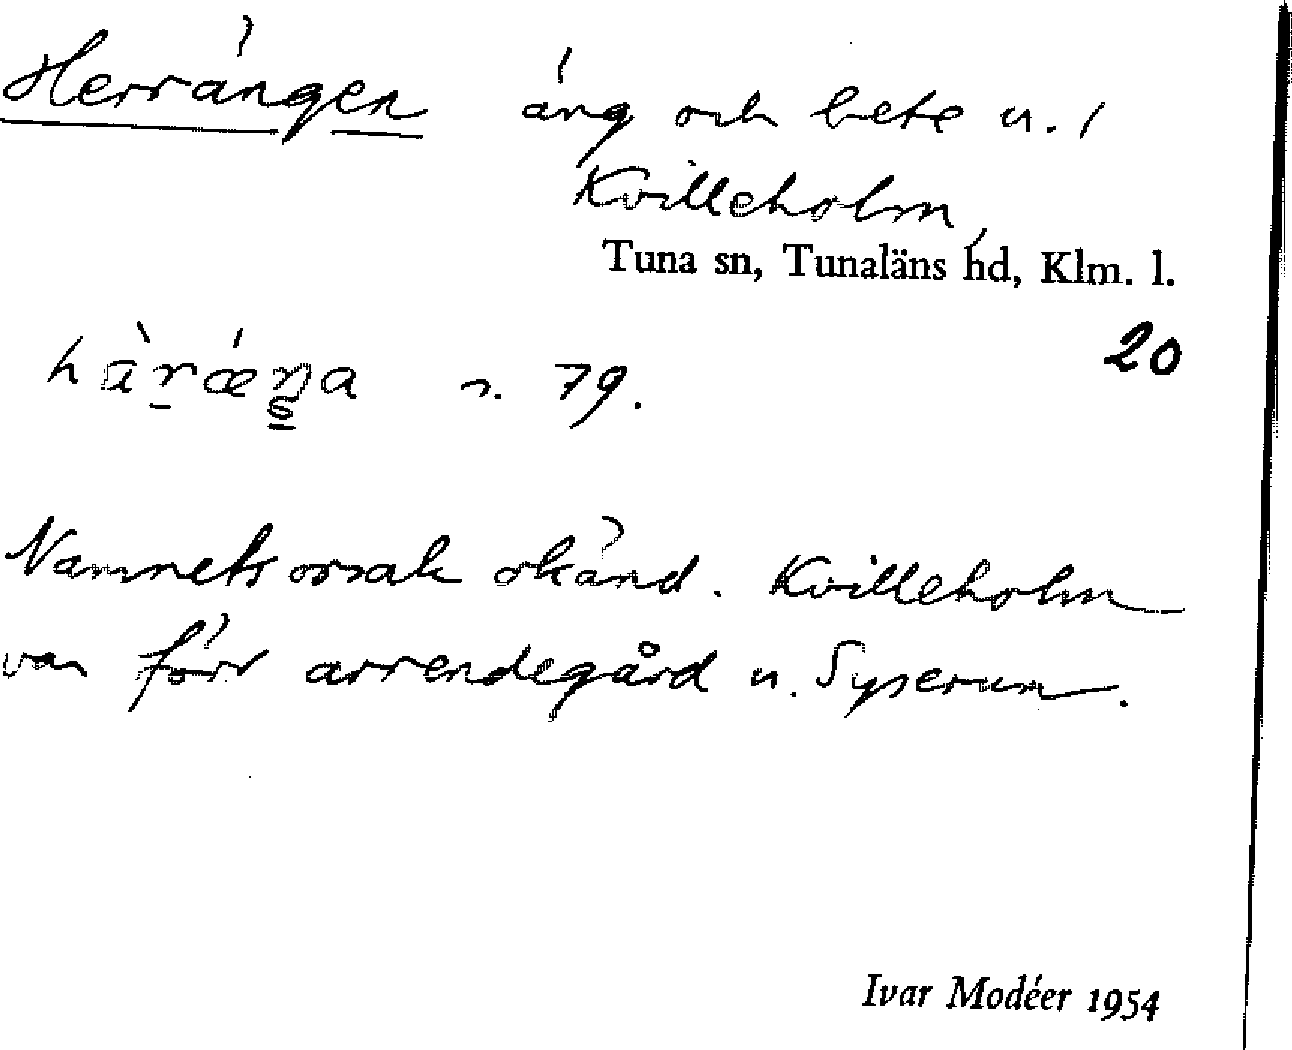 Herrängen äng och bete u. 1
Kvilleholm,
Tuna sn, Tunaläns hd, Klm. l.
20
n. 79.
Namnets orsak okänd. Kvilleholm
var förr arrendegård u. Syserum.
Ivar Modéer 1954